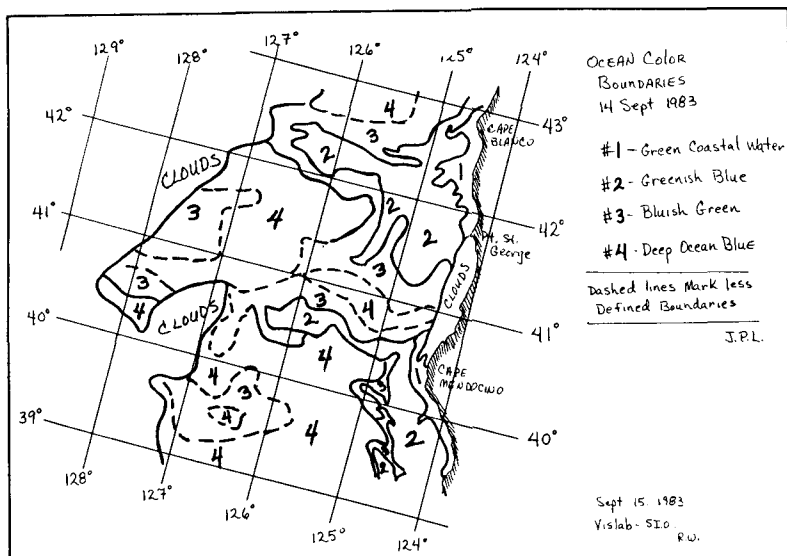 129°
128°
127°
126°
125°
124°
42°
43°
41°
42°
40°
41°
39°
40°
128°
127°
126°
125°
124°
CLOUDS
CLOUDS
CLOUDS
CAPE
BLANCO
Pt. St.
George
CAPE
MENDOCINO
4
3
2
1
2
2
3
4
3
3
4
3
4
2
4
4
3
4
4
4
3
2
2
OCEAN COLOR
BOUNDARIES
14 Sept 1983
#1 - Green Coastal Water
#2 - Greenish Blue
#3 - Bluish Green
#4 - Deep Ocean Blue
Dashed lines Mark less
Defined Boundaries
J.P.L.
Sept 15. 1983
Vislab - S.I.O.
R.W.